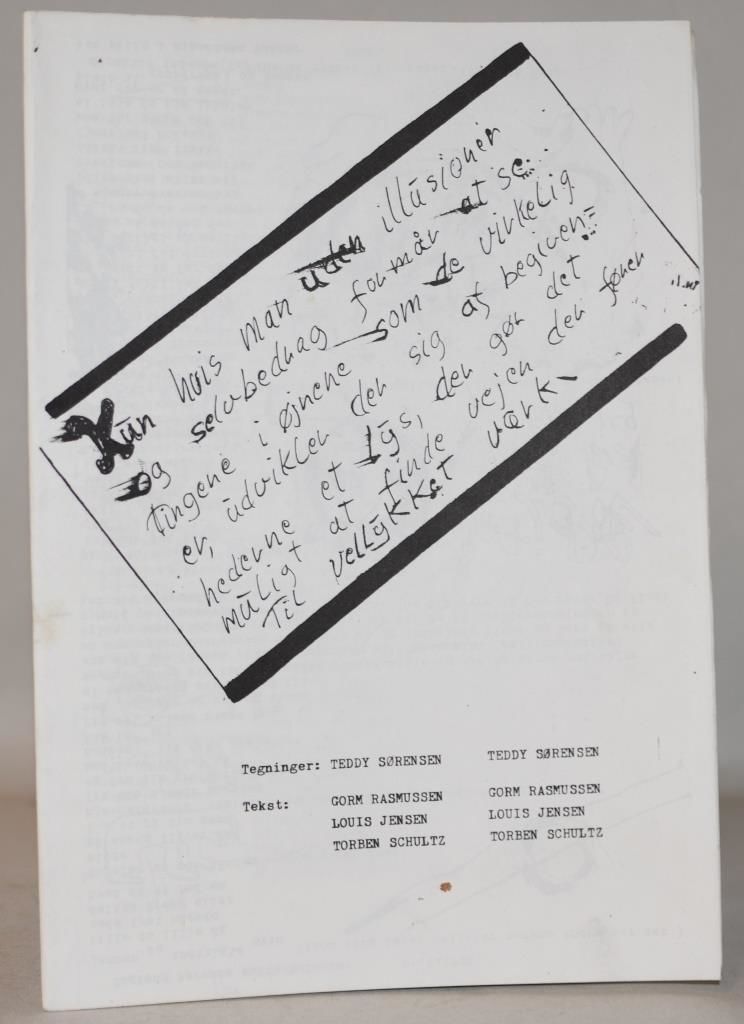 Kūn hvis man ūden illūsioner
og selvbedrag formår at se...
tingene i øjnene som de virkelig
er, ūdvikler der sig af begiven=
hederne et lȳs, der gør det
mūligt at finde vejen der fører
Til vellȳkket værk
Tegninger: TEDDY SØRENSEN TEDDY SØRENSEN
Tekst: GORM RASMUSSEN GORM RASMUSSEN
LOUIS JENSEN LOUIS JENSEN
TORBEN SCHULTZ TORBEN SCHULTZ